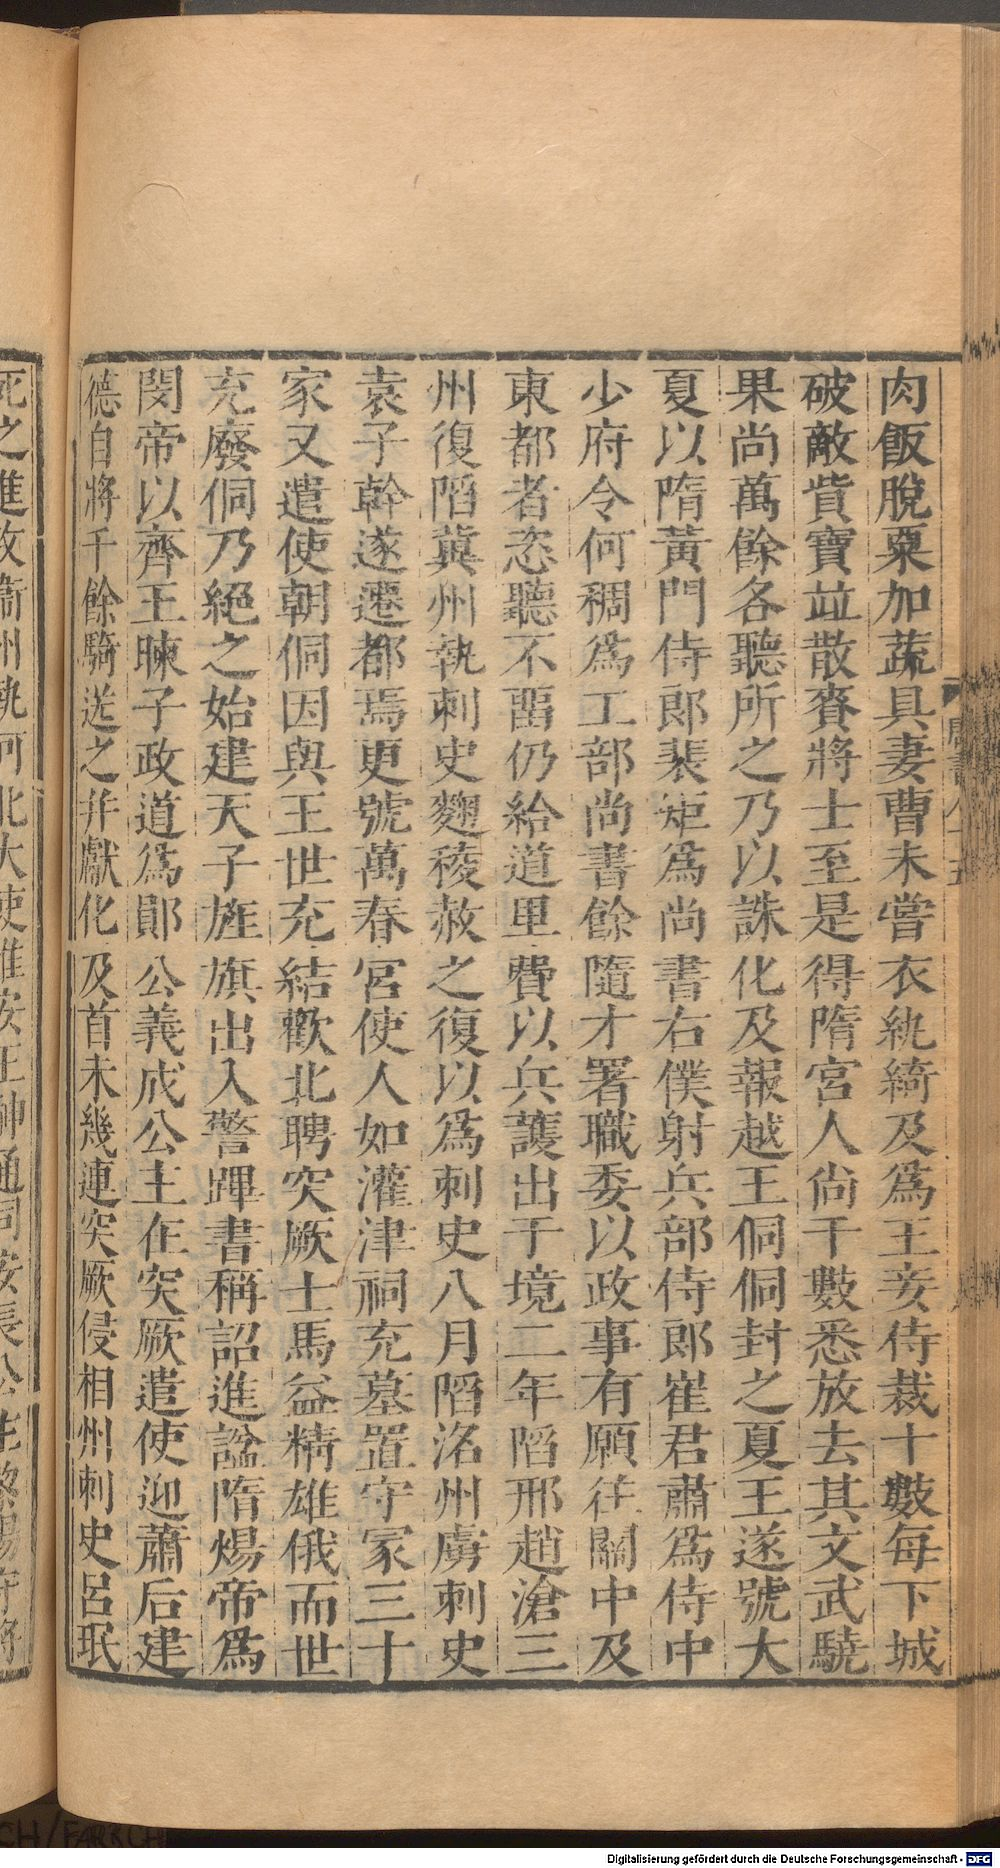 肉飯脫粟加蔬具妻曹未嘗衣紈綺及爲王妾侍裁十數每下城
破敵貲寶竝散賚將士至是得隋宮人尙千數悉放去其文武驍
果尚萬餘各聽所之乃以誅化及報越王侗侗封之夏王遂號大
夏以隋黃門侍郎裴矩爲尚書右僕射兵部侍郎崔君肅爲侍中
少府令何稠爲工部尚書餘隨才署職委以政事有願往關中及
東都者恣聽不畱仍給道里費以兵護出于境二年陷邢趙滄三
州復陷冀州執刺史麴稜赦之復以爲刺史八月陷洺州虜刺史
袁子幹遂遷都焉更號萬春宮使人如灌津祠充墓置守冢三十
家又遣使朝侗因與王世充結歡北聘突厥士馬益精雄俄而世
充廢侗乃絕之始建天子旌旗出入警蹕書稱詔進諡隋煬帝爲
閔帝以齊王暕子政道爲鄖公義成公主在突厥遣使迎蕭后建
德自將千餘騎送之幷獻化及首未幾連突厥侵相州刺史呂珉
死之進攻
州執河北大使淮安王神通同安長公主黎陽守將
Digitalisierung gefördert durch die Deutsche Forschungsgemeinschaft - DFG